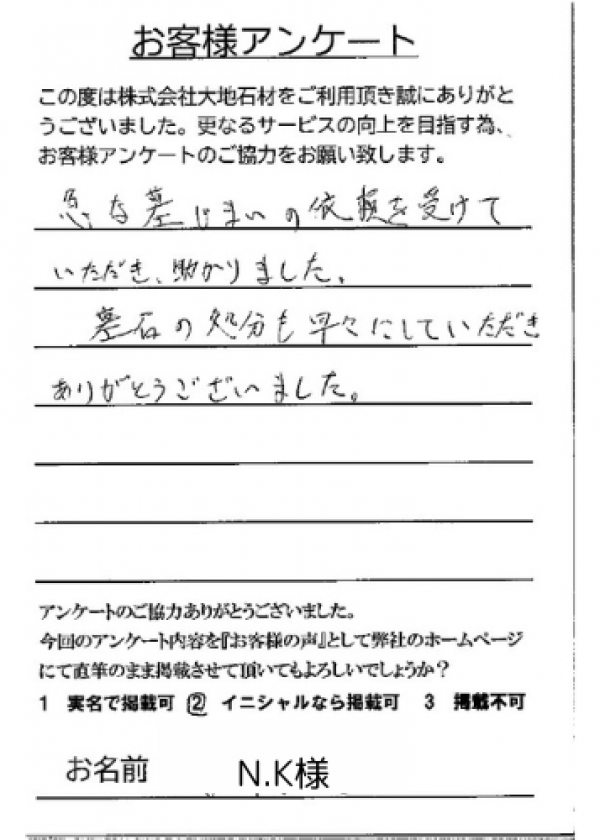 お客様アンケート
この度は株式会社大地石材をご利用頂き誠にありがと
うございました。更なるサービスの向上を目指す為、
お客様アンケートのご協力をお願い致します。
急な墓じまいの依頼を受けて
いただき、助かりました。
墓石の処分も早々にしていただき
ありがとうございました。
アンケートのご協力ありがとうございました。
今回のアンケート内容を『お客様の声』として弊社のホームページ
にて直筆のまま掲載させて頂いてもよろしいでしょうか？
1 実名で掲載可 ② イニシャルなら掲載可 3 掲載不可
お名前 N.K様